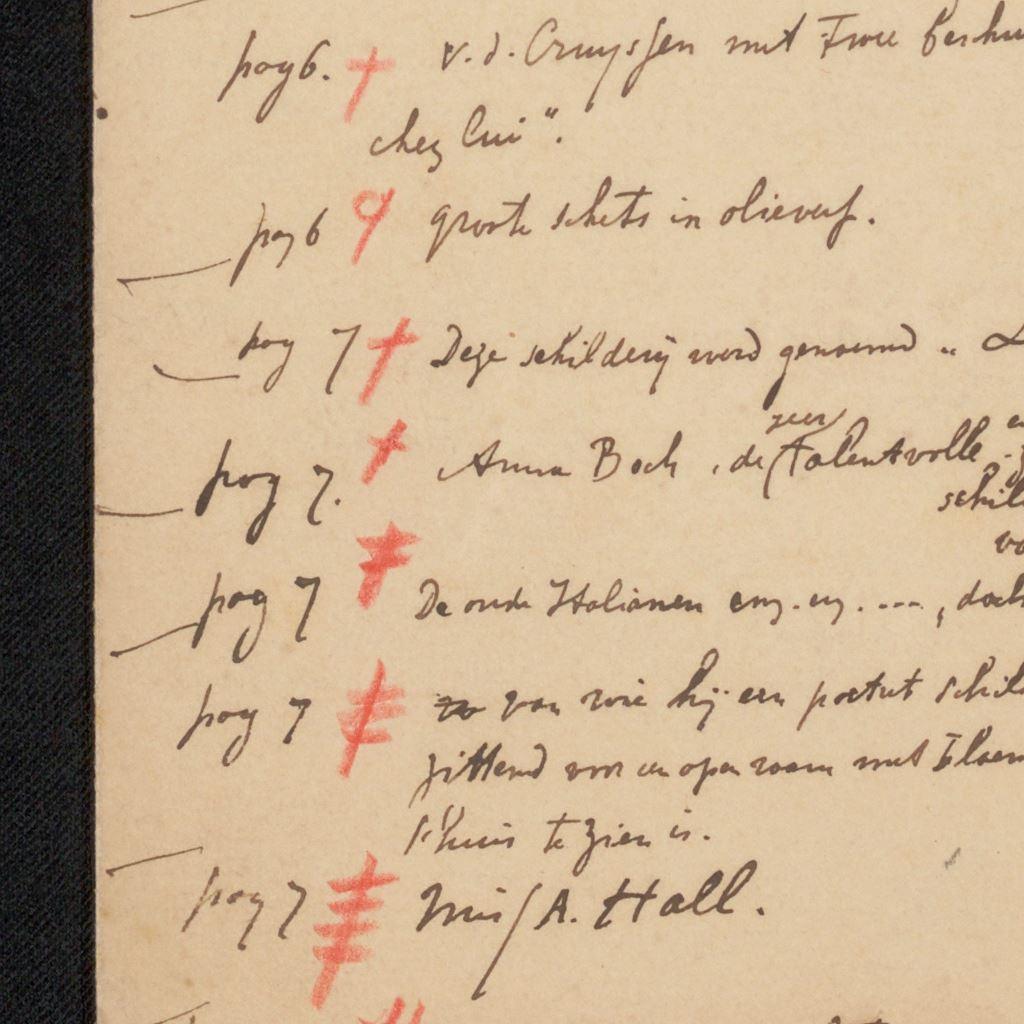 pag 6. v. d. Cruyssen met Frou
chez lui".
pag 6 groote schets in olieverf.
pag 7 Deze schilderij werd genoemd „
zeer
pag 7. Anna Boch, de talentvolle
schil
vo
pag 7 De oude Italianen enz. enz. ...., doch
pag 7 van wie hij een portret schil
zittend voor een open raam met
't huis te zien is.
pag 7 Miss A. Hall.